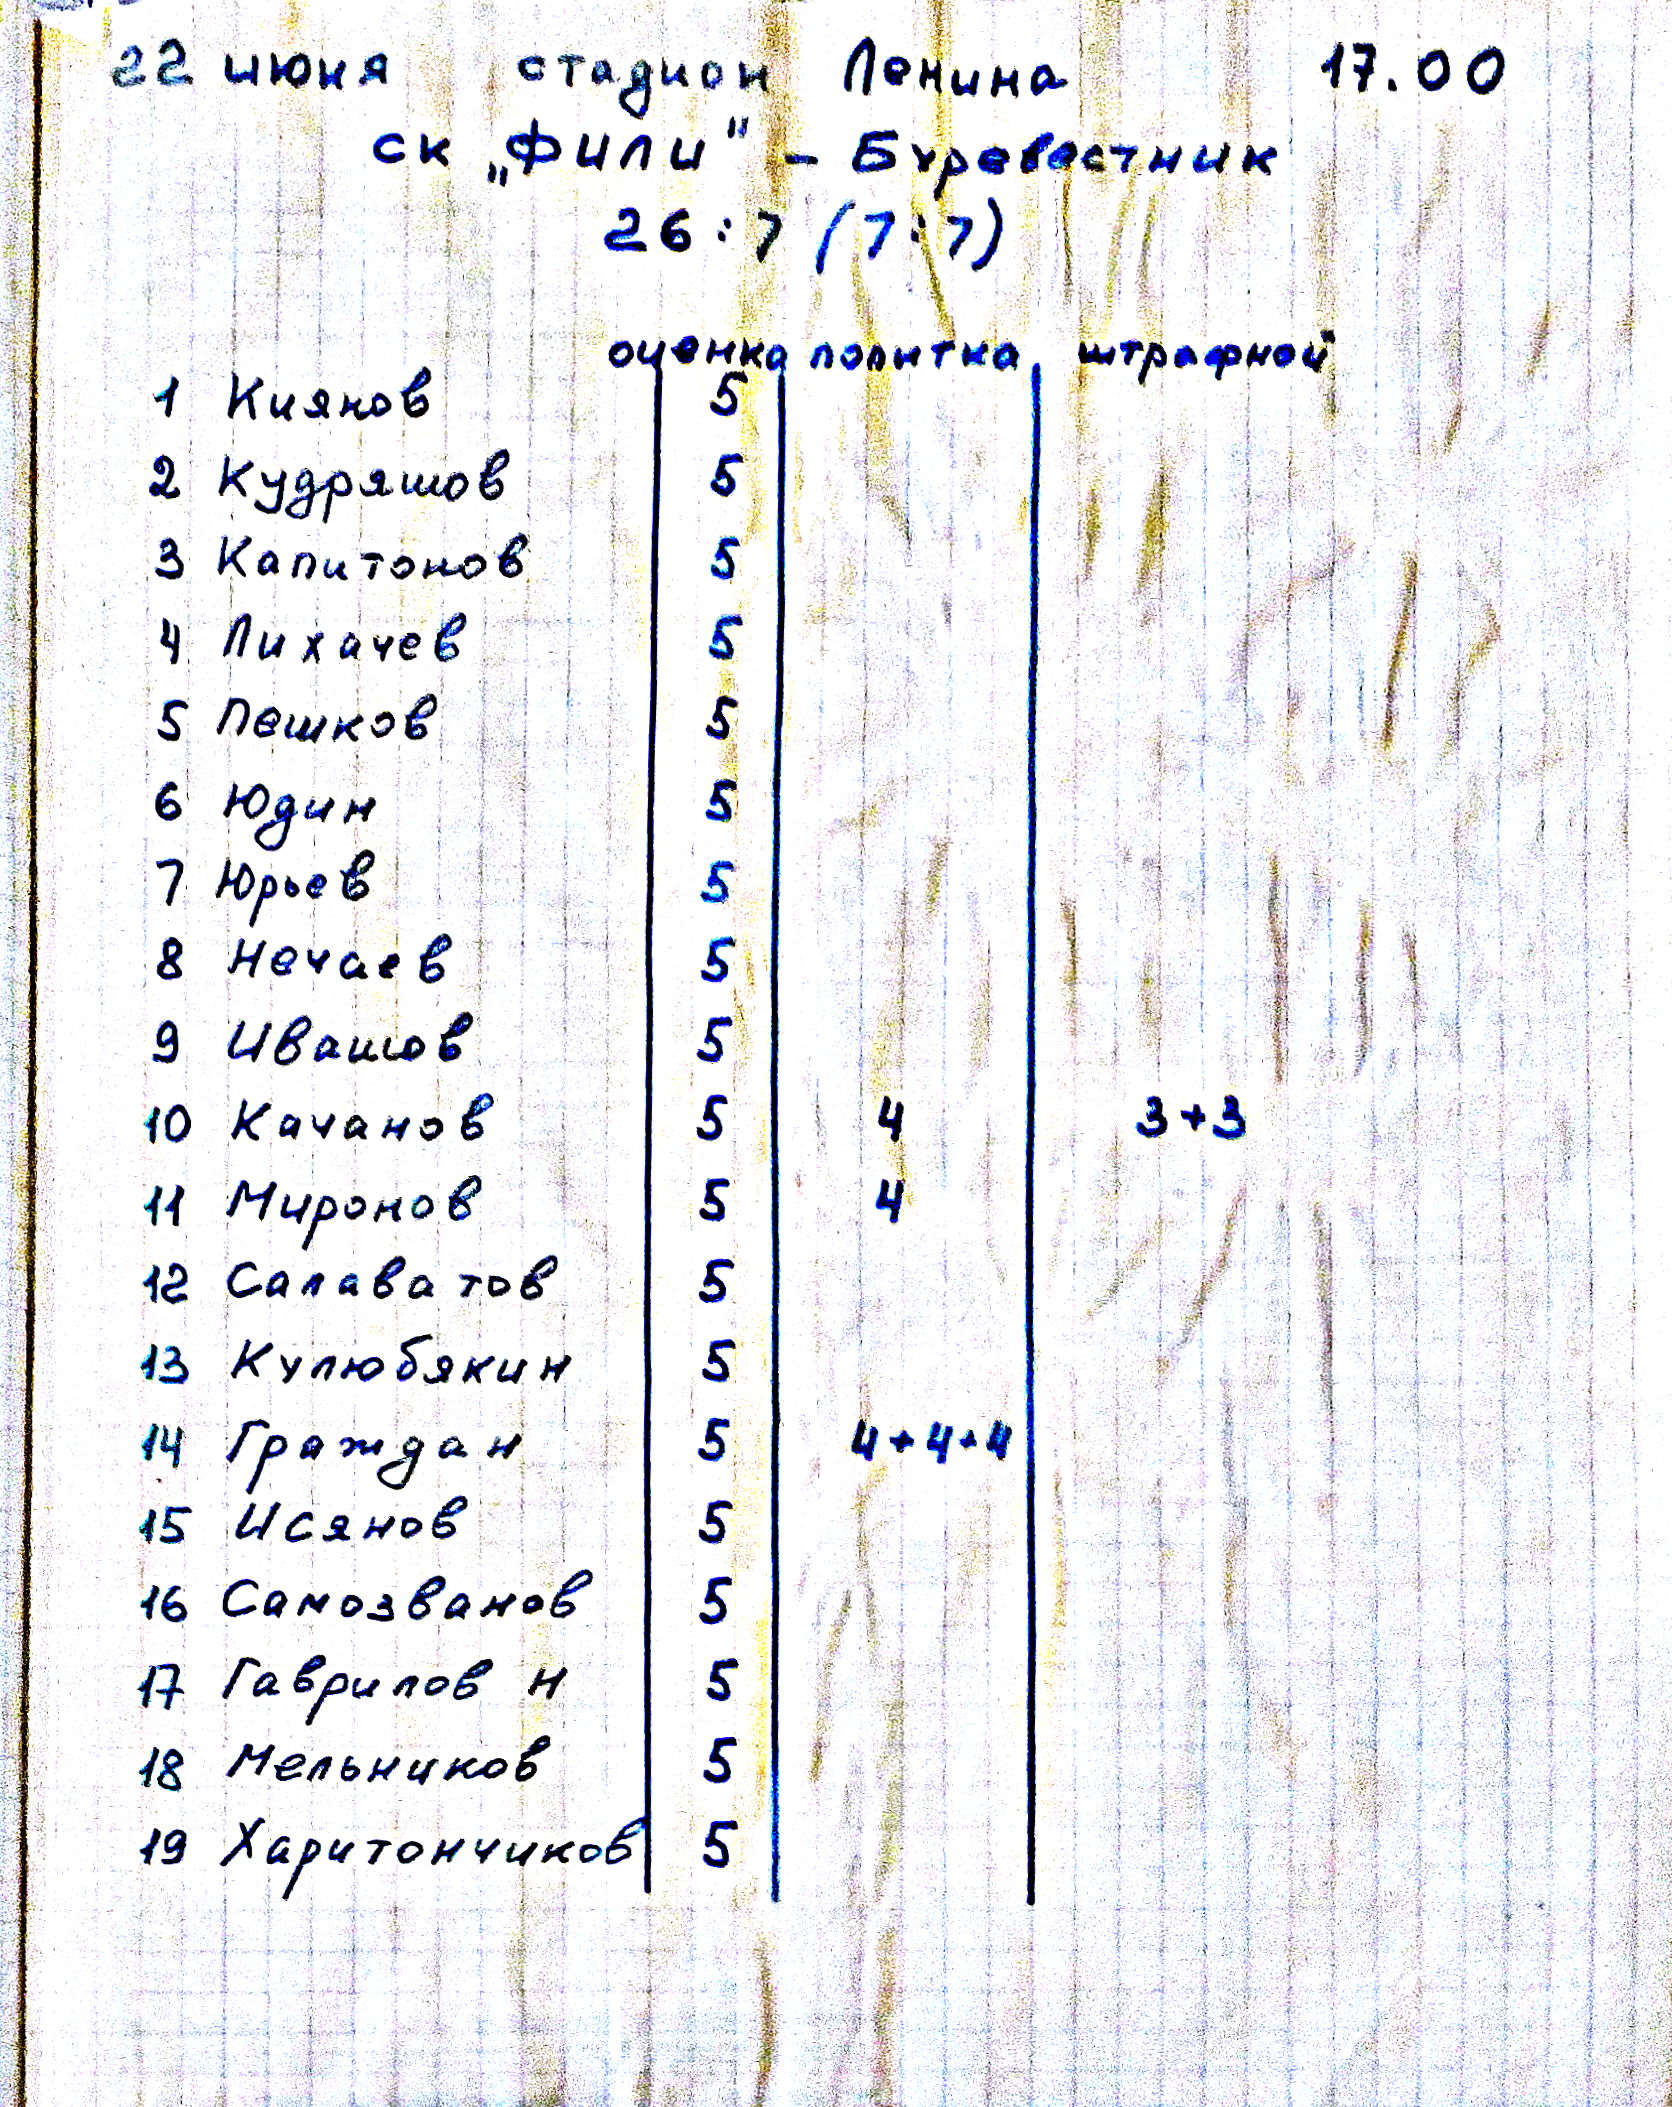 22 июня стадион Ленина 17.00
ск „Фили" - Буревестник
26:7 (7:7)
оценка попытка штрафной
1 Киянов 5
2 Кудряшов 5
3 Капитонов 5
4 Лихачев 5
5 Пешков 5
6 Юдин 5
7 Юрьев 5
8 Нечаев 5
9 Ивашов 5
10 Качанов 5 4 3+3
11 Миронов 5 4
12 Салаватов 5
13 Кулюбякин 5
14 Граждан 5 4+4+4
15 Исянов 5
16 Самозванов 5
17 Гаврилов Н 5
18 Мельников 5
19 Харитончиков 5